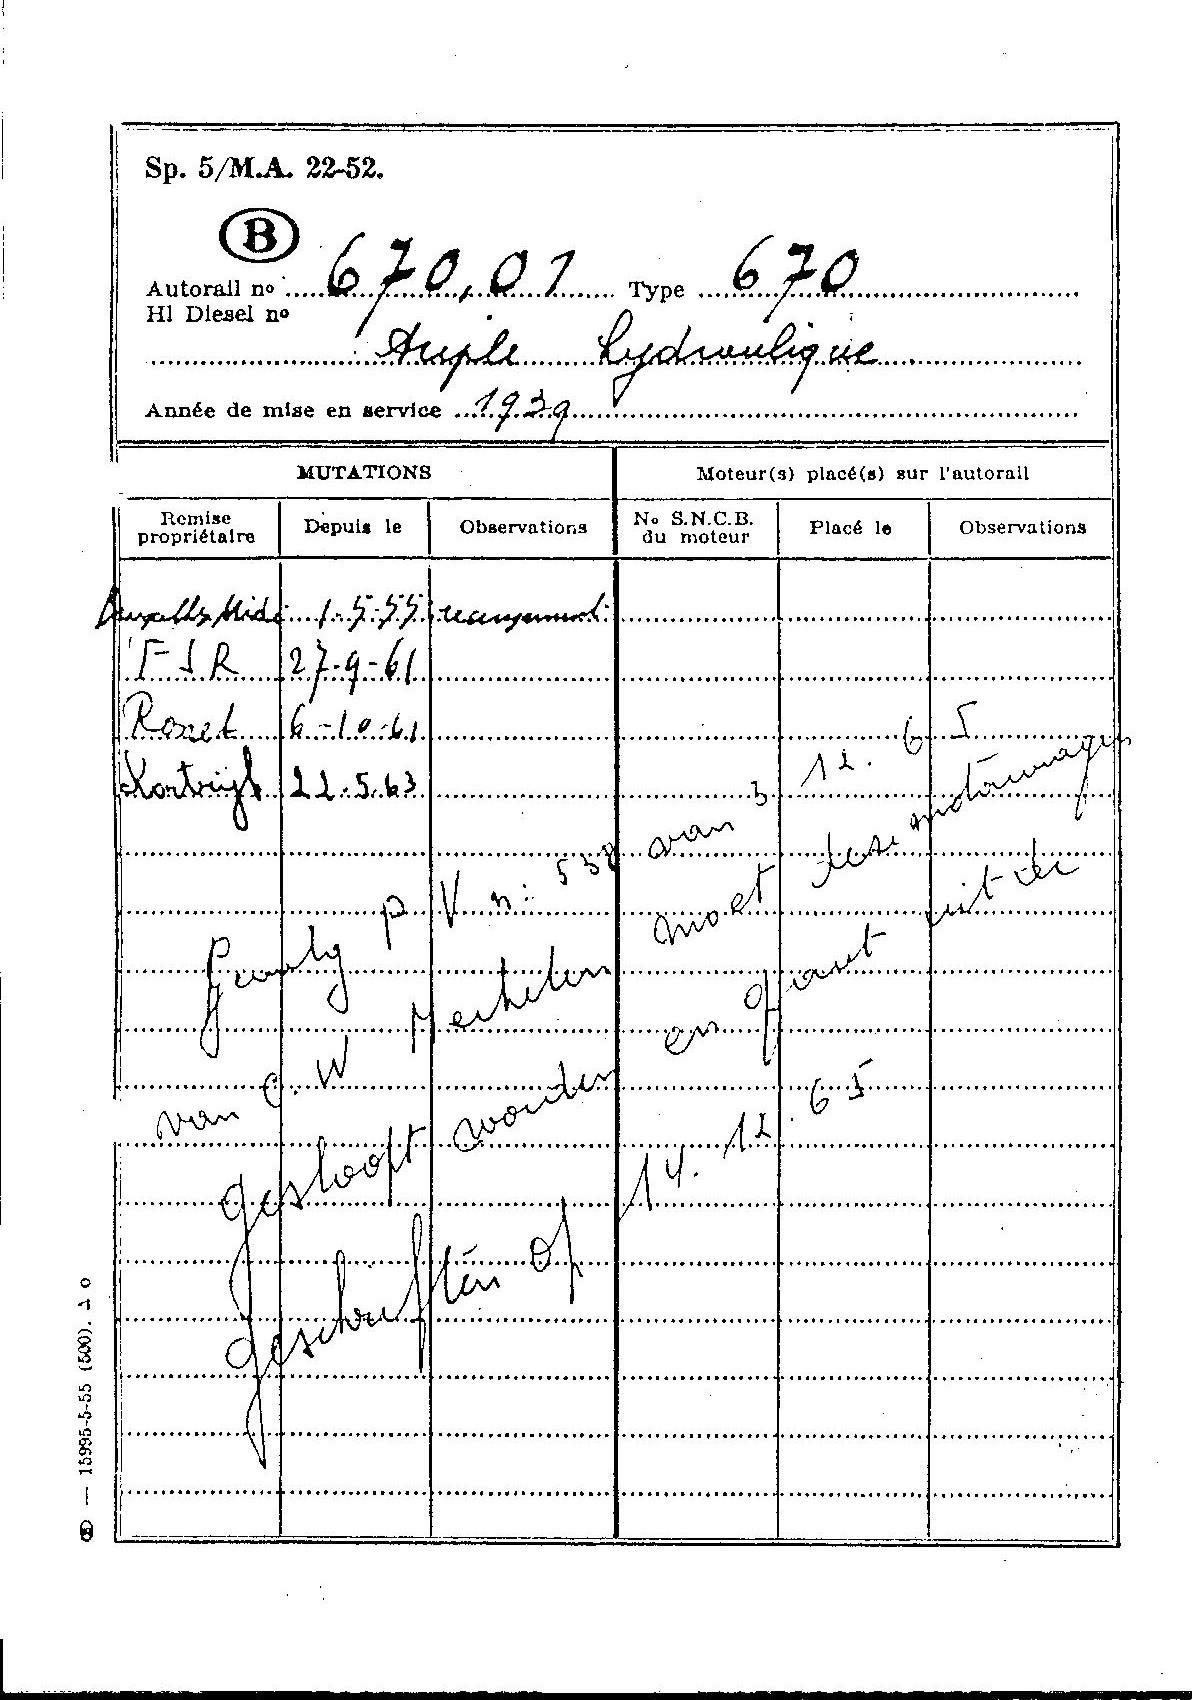 Sp. 5/M.A. 22-52.
B
Autorail nº 670,01 Type 670
Hl Diesel nº
Triple hydraulique
Année de mise en service 1939
MUTATIONS Moteur(s) placé(s) sur l'autorail
Remise propriétaire Depuis le Observations Nº S.N.C.B. du moteur Placé le Observations
Bruxelles Midi 1-5-55 recensement
FSR 27-9-61
Ronet 6-10-61
Kortrijk 22.5.63
P V n: 538 van 3 12. 65
van C. W Mechelen moet deze motorwagen
gesloopt worden en geant uit de
geschriften op 14. 12. 65
B — 15995-5-55 (500).